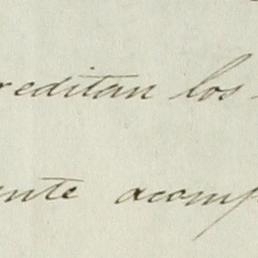 reditan los
ente acomp